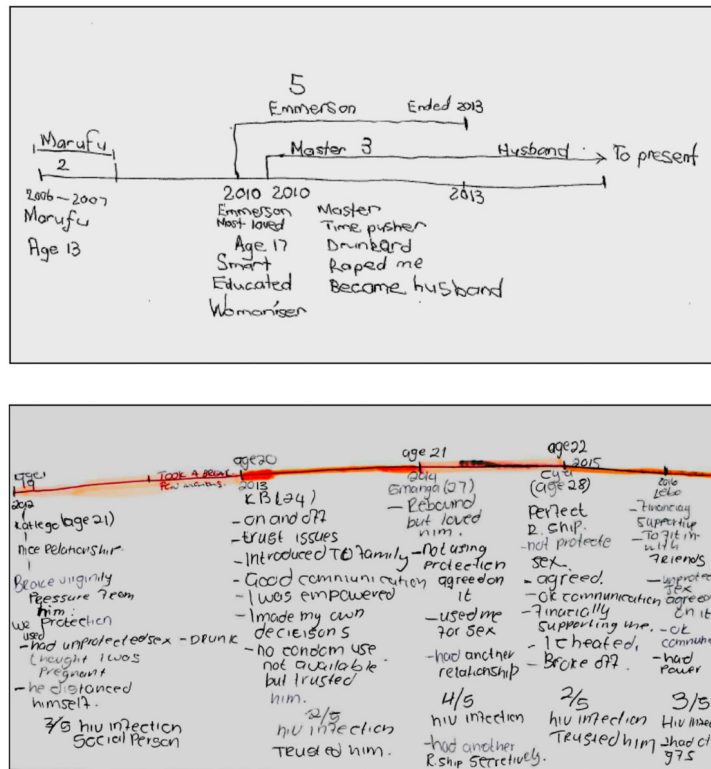 5
Emmerson Ended 2013
Marufu Master 3 Husband To present
2
2006-2007 2010 2010 2013
Marufu
Age 13
Emmerson
Most loved
Age 17
Smart
Educated
Womaniser
Master
Time pusher
Drunkard
Raped me
Became husband
age 19
2012
Katlego (age 21)
Nice Relationship.
Broke virginity
Pressure from
him.
we protection
used
-had unprotected sex - DRUNK
thought I was
pregnant
-he distanced
himself.
3/5 hiv infection
Social Person
TOOK A BREAK
Few months.
age 20
2013
KB (24)
-on and off
-trust issues
-Introduced TO family
-Good communication
-I was empowered
-I made my own
decisions
-no condom use
not available
but trusted
him.
2/5
hiv infection
Trusted him.
age 21
2014
(27)
-Rebound
but loved
him.
-Not using
protection
agreed on
it
-used me
for sex
-had another
relationship
4/5
hiv infection
-had another
R.ship secretively.
age 22
2015
(age 28)
perfect
R.ship.
-not protecte
sex.
-agreed.
-ok communication
-financially
supporting me.
-I cheated.
-Broke off.
2/5
hiv infection
Trusted him
2016
Lebo
-Financially
supportive
-To fit in
with
friends
-unprote
sex
agreed
on it
-ok
communi
-had
power
3/5
HIV infec